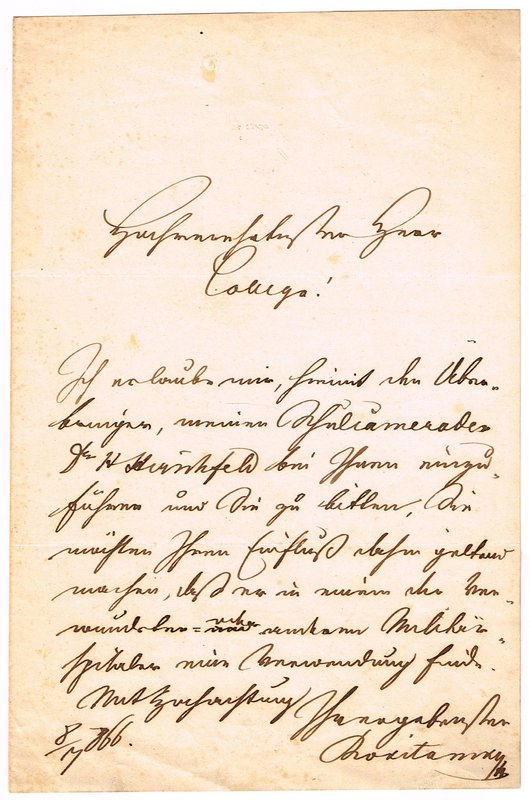 Hochverehrtester Herr
College!
Ich erlaube mir, hiemit den Über-
bringer, meinen Schulcameraden
Dr H Hirschfeld bei Ihnen einzu-
führen und Sie zu bitten, Sie
möchten Ihren Einfluß dahin geltend
machen, daß er in einem der Ver-
wundeten= oder anderen Militär-
spitäler eine Verwendung finde.
Mit Hochachtung
Ihr ergebenster
8/7 866.
Rokitansky